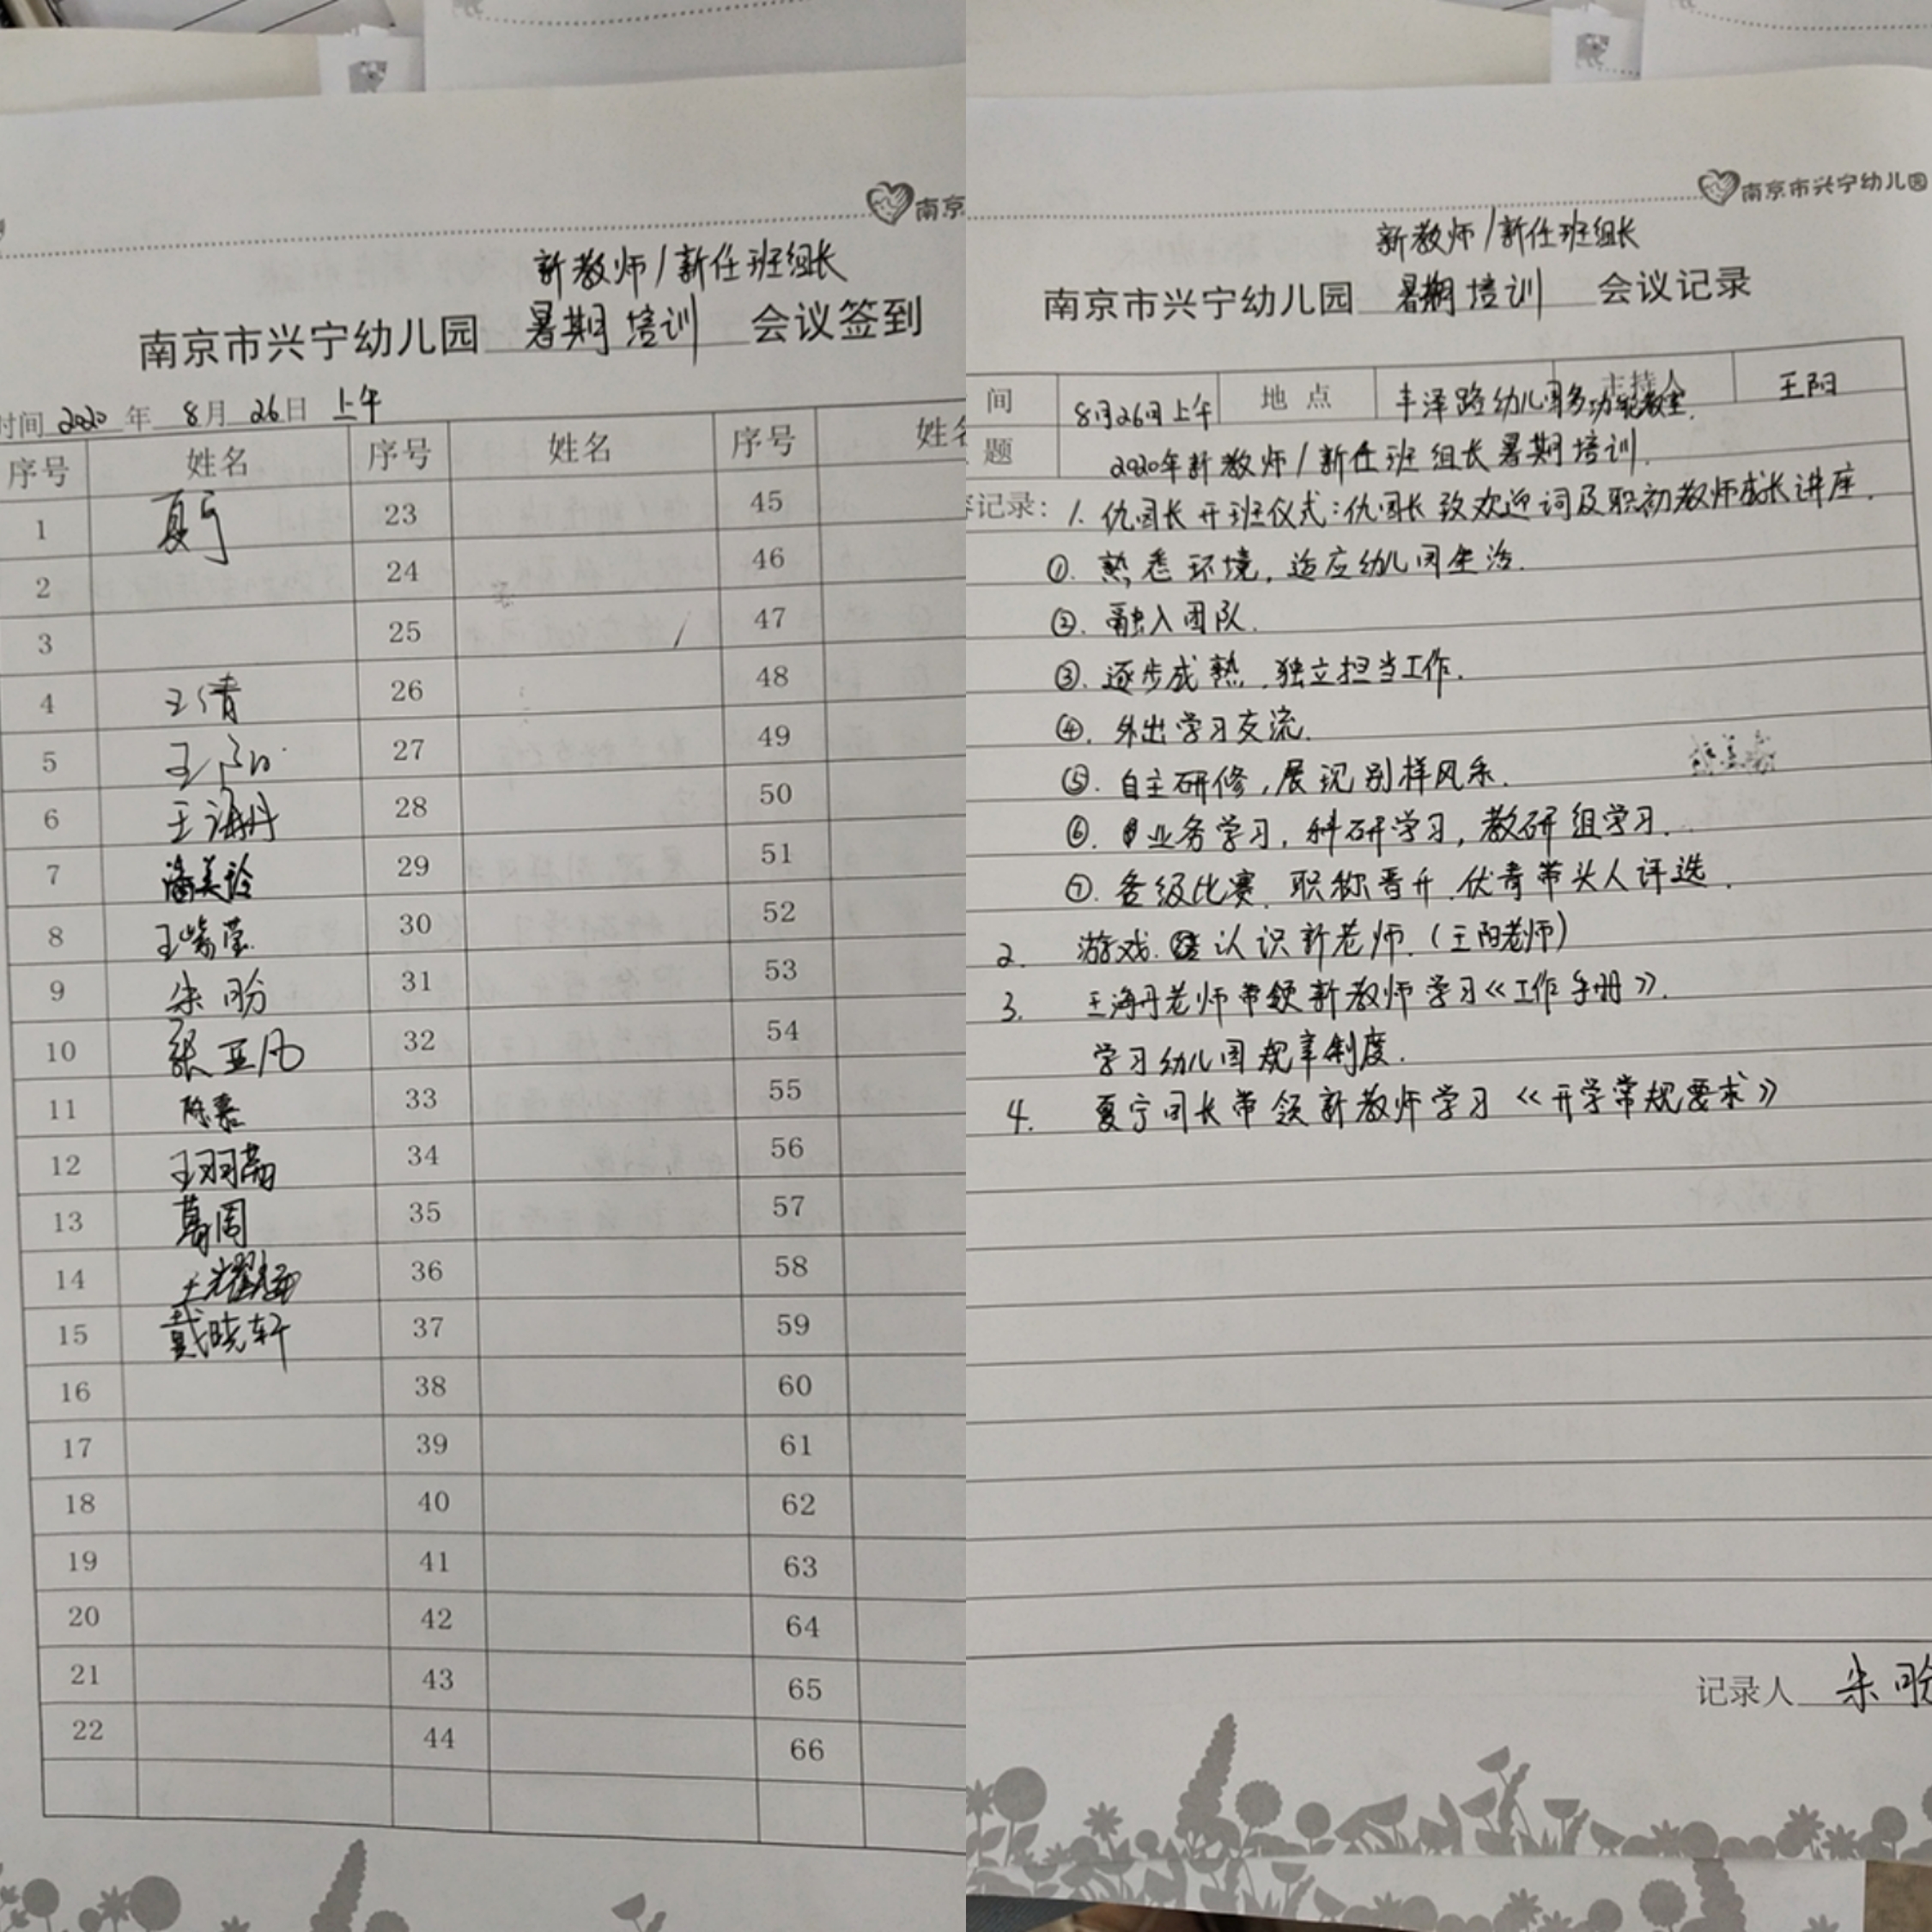 南京
新教师/新任班组长
南京市兴宁幼儿园 暑期培训 会议签到
时间 2020 年 8月 26日 上午
序号 姓名 序号 姓名 序号 姓名
1 夏宁 23 45
2 24 46
3 25 47
4 王倩 26 48
5 王阳 27 49
6 王海丹 28 50
7 潘美玲 29 51
8 王紫莹 30 52
9 朱盼 31 53
10 张亚凡 32 54
11 陈嘉 33 55
12 王羽 34 56
13 葛周 35 57
14 王耀 36 58
15 戴晓轩 37 59
16 38 60
17 39 61
18 40 62
19 41 63
20 42 64
21 43 65
22 44 66
南京市兴宁幼儿园
新教师/新任班组长
南京市兴宁幼儿园 暑期培训 会议记录
间 8月26日上午 地点 丰泽路幼儿园多功能教室. 主持人 王阳
题 2020年新教师/新任班组长暑期培训.
记录: 1. 仇园长开班仪式:仇园长致欢迎词及职初教师成长讲座.
①. 熟悉环境,适应幼儿园生活.
②. 融入团队.
③. 逐步成熟,独立担当工作.
④. 外出学习交流.
⑤. 自主研修,展现别样风采.
⑥. 业务学习,科研学习,教研组学习.
⑦. 各级比赛、职称晋升、优青带头人评选.
2. 游戏. 认识新老师.(王阳老师)
3. 王海丹老师带领新教师学习《工作手册》.
学习幼儿园规章制度.
4. 夏宁园长带领新教师学习《开学常规要求》
记录人 朱盼